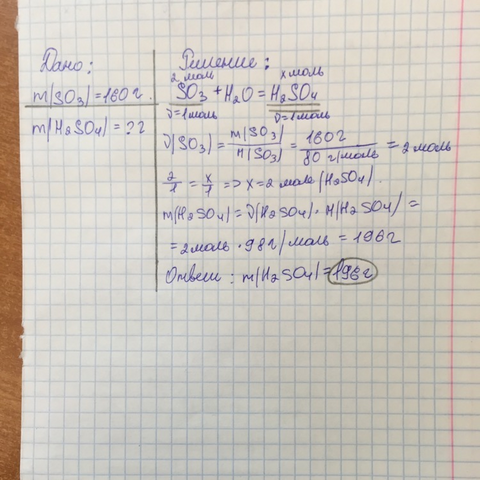 Дано:
m(SO₃) = 160 г.
m(H₂SO₄) = ? г
Решение:
2 моль x моль
SO₃ + H₂O = H₂SO₄
ν = 1 моль ν = 1 моль
ν(SO₃) = m(SO₃) / M(SO₃) = 160 г / 80 г/моль = 2 моль
2/1 = x/1 => x = 2 моль (H₂SO₄).
m(H₂SO₄) = ν(H₂SO₄) · M(H₂SO₄) =
= 2 моль · 98 г/моль = 196 г
Ответ: m(H₂SO₄) = 196 г